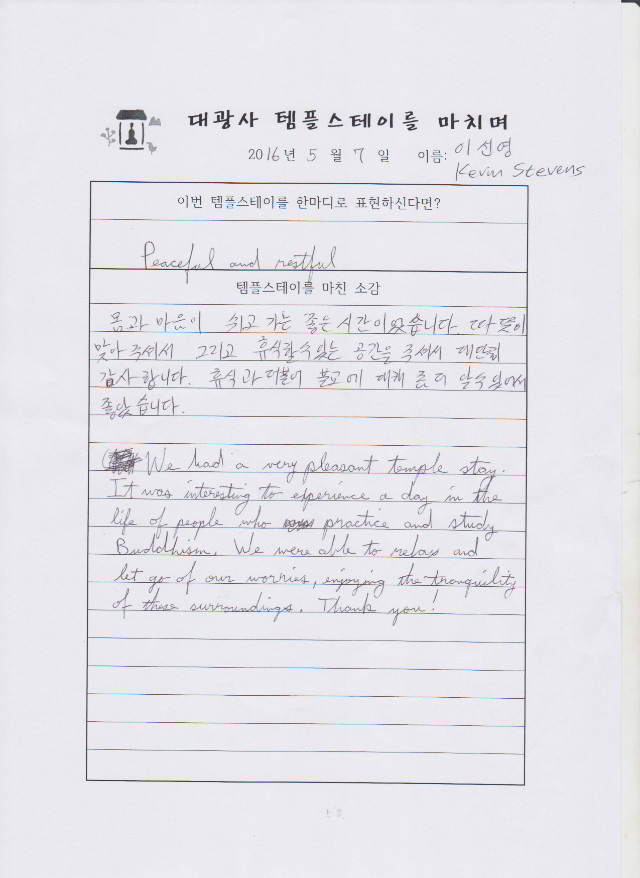 대광사 템플스테이를 마치며
2016년 5월 7일 이름: 이선영
Kevin Stevens
이번 템플스테이를 한마디로 표현하신다면?
Peaceful and restful
템플스테이를 마친 소감
몸과 마음이 쉬고 가는 좋은 시간이었습니다. 따뜻이
맞아 주셔서 그리고 휴식할수있는 공간을 주셔서 대단히
감사합니다. 휴식과 더불어 불교에 대해 좀 더 알수 있어서
좋았습니다.
We had a very pleasant temple stay.
It was interesting to experience a day in the
life of people who practice and study
Buddhism. We were able to relax and
let go of our worries, enjoying the tranquility
of these surroundings. Thank you!